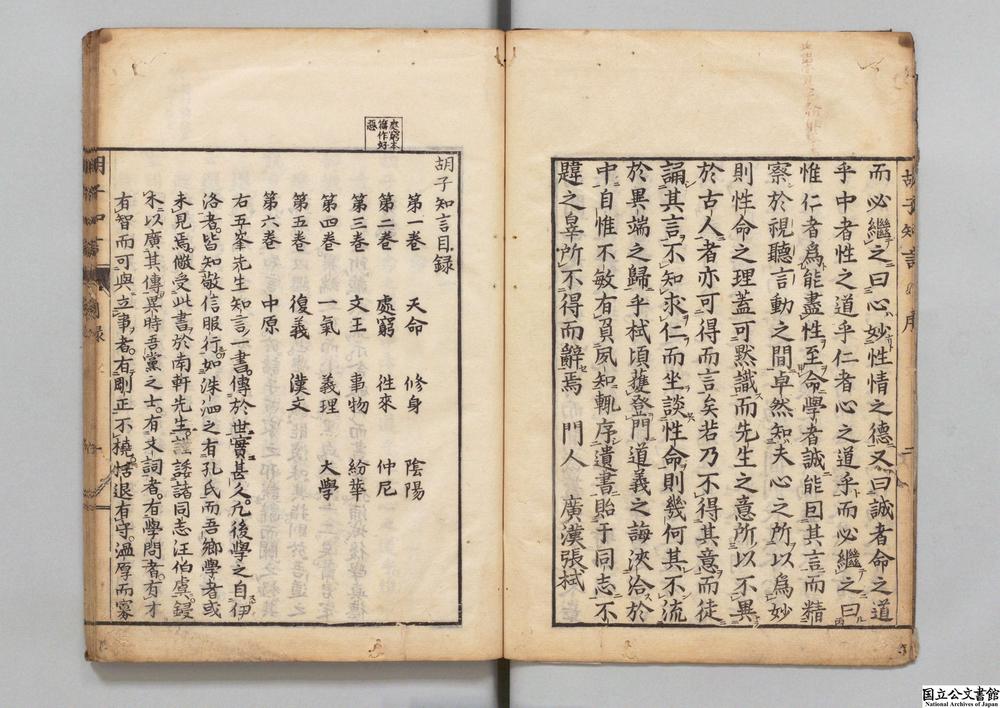 胡子知言 序
而必繼之曰心妙性情之德又曰誠者命之道
乎中者性之道乎仁者心之道乎而必繼之曰
惟仁者爲能盡性至命學者誠能因其言而精
察於視聽言動之間卓然知夫心之所以爲妙
則性命之理蓋可默識而先生之意所以不異
於古人者亦可得而言矣若乃不得其意而徒
誦其言不知求仁而坐談性命則幾何其不流
於異端之歸乎栻頃獲登門道義之誨浹洽於
中自惟不敏有負夙知輒序遺書貽于同志不
韙之辠所不得而辭焉 門人 廣漢張栻
處窮本
篇作好
惡
胡子知言目録
第一巻 天命 修身 陰陽
第二巻 處窮 徃來 仲尼
第三巻 文王 事物 紛華
第四巻 一氣 義理 大學
第五巻 復義 漢文
第六巻 中原
右五峯先生知言一書傳於世實甚久凢後學之自伊
洛者皆知敬信服行如洙泗之有孔氏而吾鄉學者或
未見焉儆受此書於南軒先生謹諉諸同志汪伯虞鋟
木以廣其傳異時吾黨之士有文詞者有學問者有才
有智而可與立事者有剛正不橈恬退有守溫厚而寡
胡子知言 目録
国立公文書館
National Archives of Japan